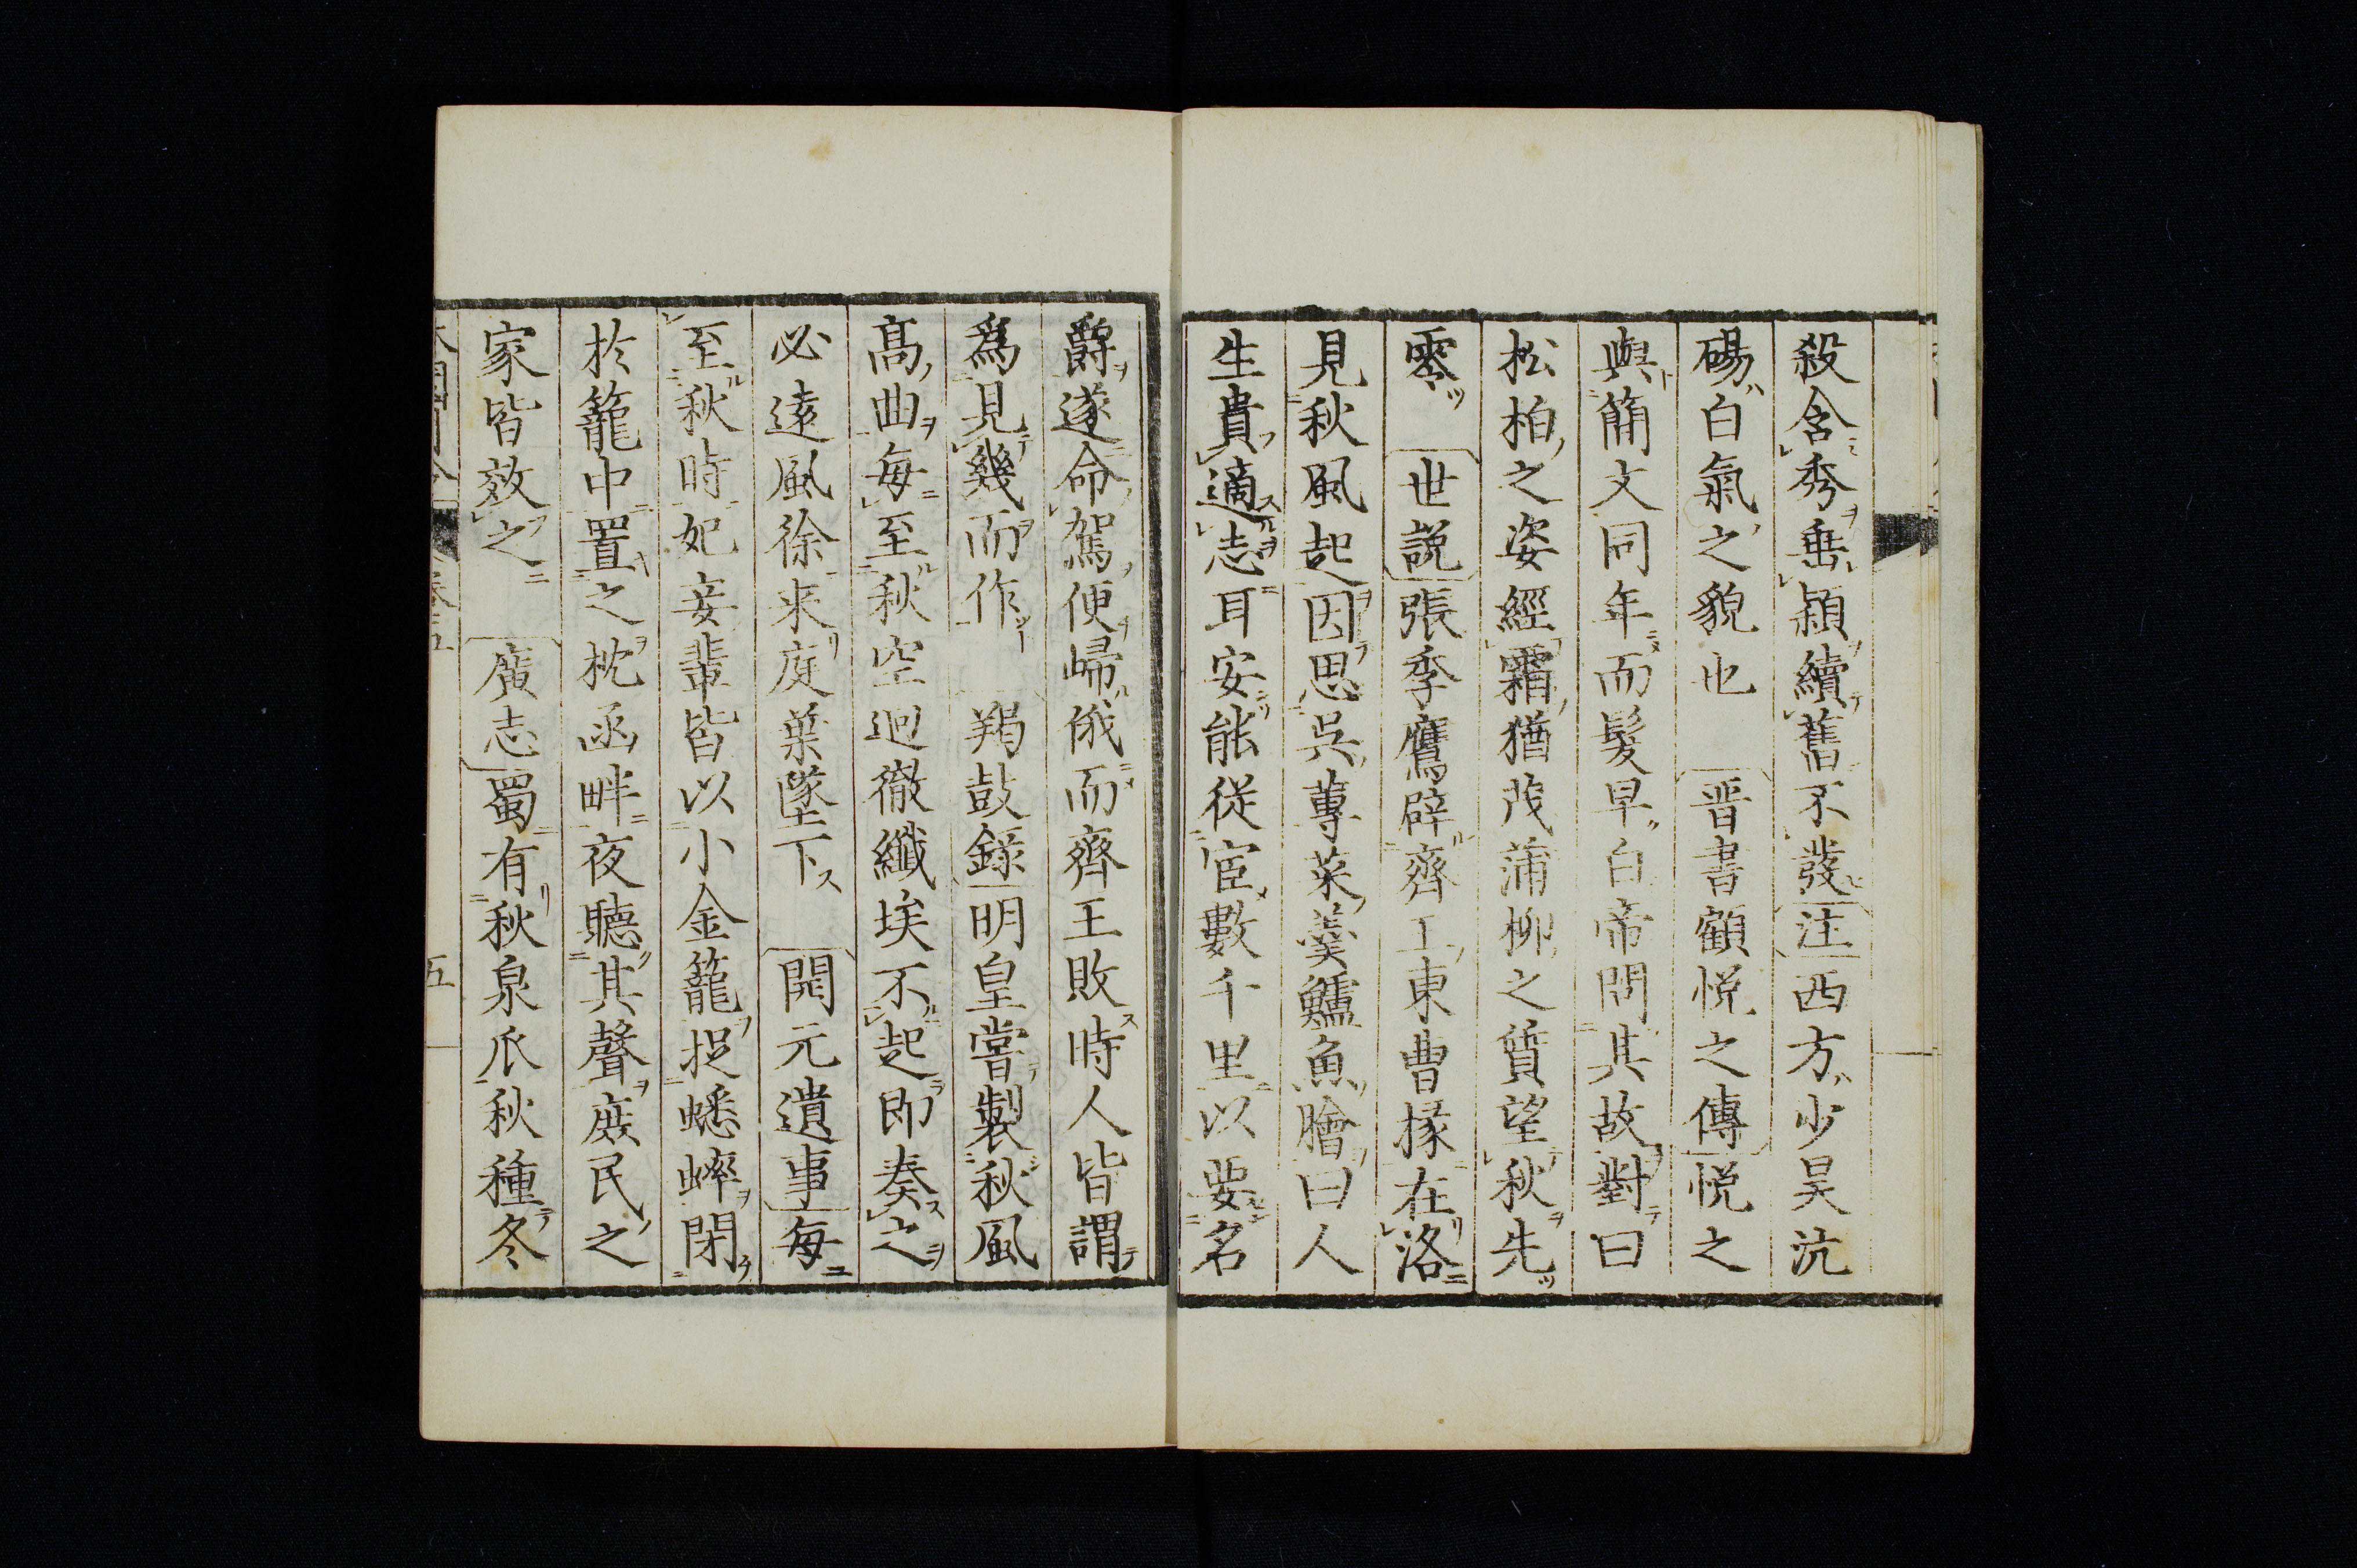 殺含秀垂穎續舊不發注西方少昊沆
碭白氣之貌也 晋書顧悦之傳悦之
與簡文同年而髮早白帝問其故對曰
松柏之姿經霜猶茂蒲柳之質望秋先
零 世説張季鷹辟齊王東曹掾在洛
見秋風起因思呉蓴菜羹鱸魚膾曰人
生貴適志耳安能従宦數千里以要名
爵遂命駕便歸俄而齊王敗時人皆謂
爲見幾而作 羯鼓錄明皇嘗製秋風
髙曲每至秋空迥徹纖埃不起即奏之
必遠風徐来庭葉墜下 開元遺事每
至秋時妃妾輩皆以小金籠捉蟋蟀閉
於籠中置之枕函畔夜聽其聲庶民之
家皆效之 廣志蜀有秋泉瓜秋種冬
卷五 五